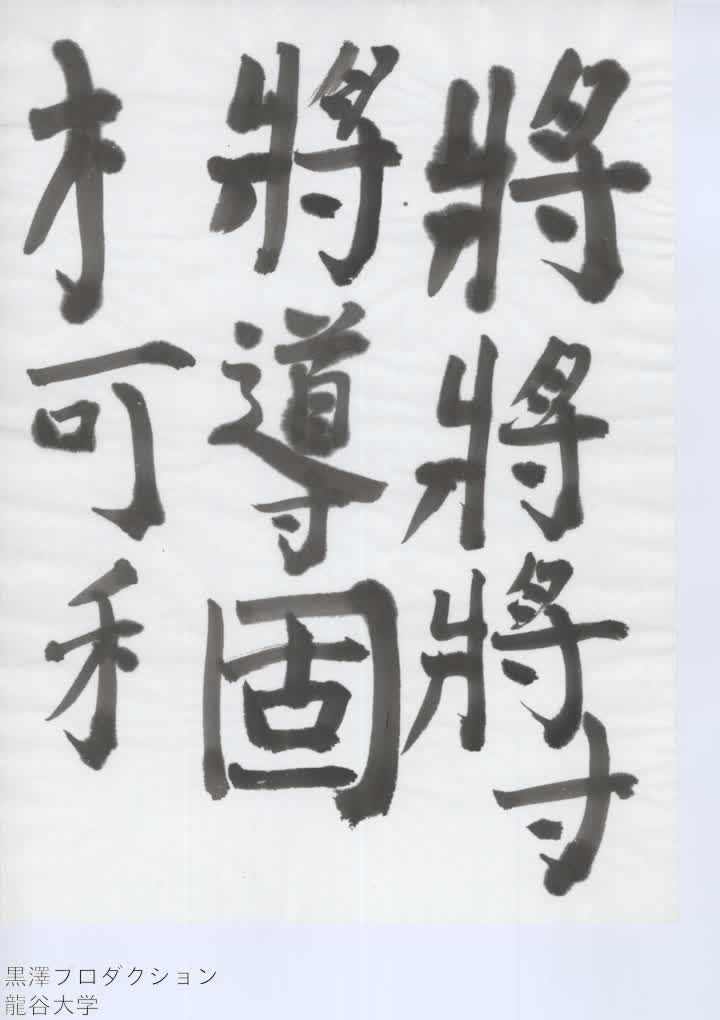 將將將寸
將導固
才可禾
黒澤プロダクション
龍谷大学